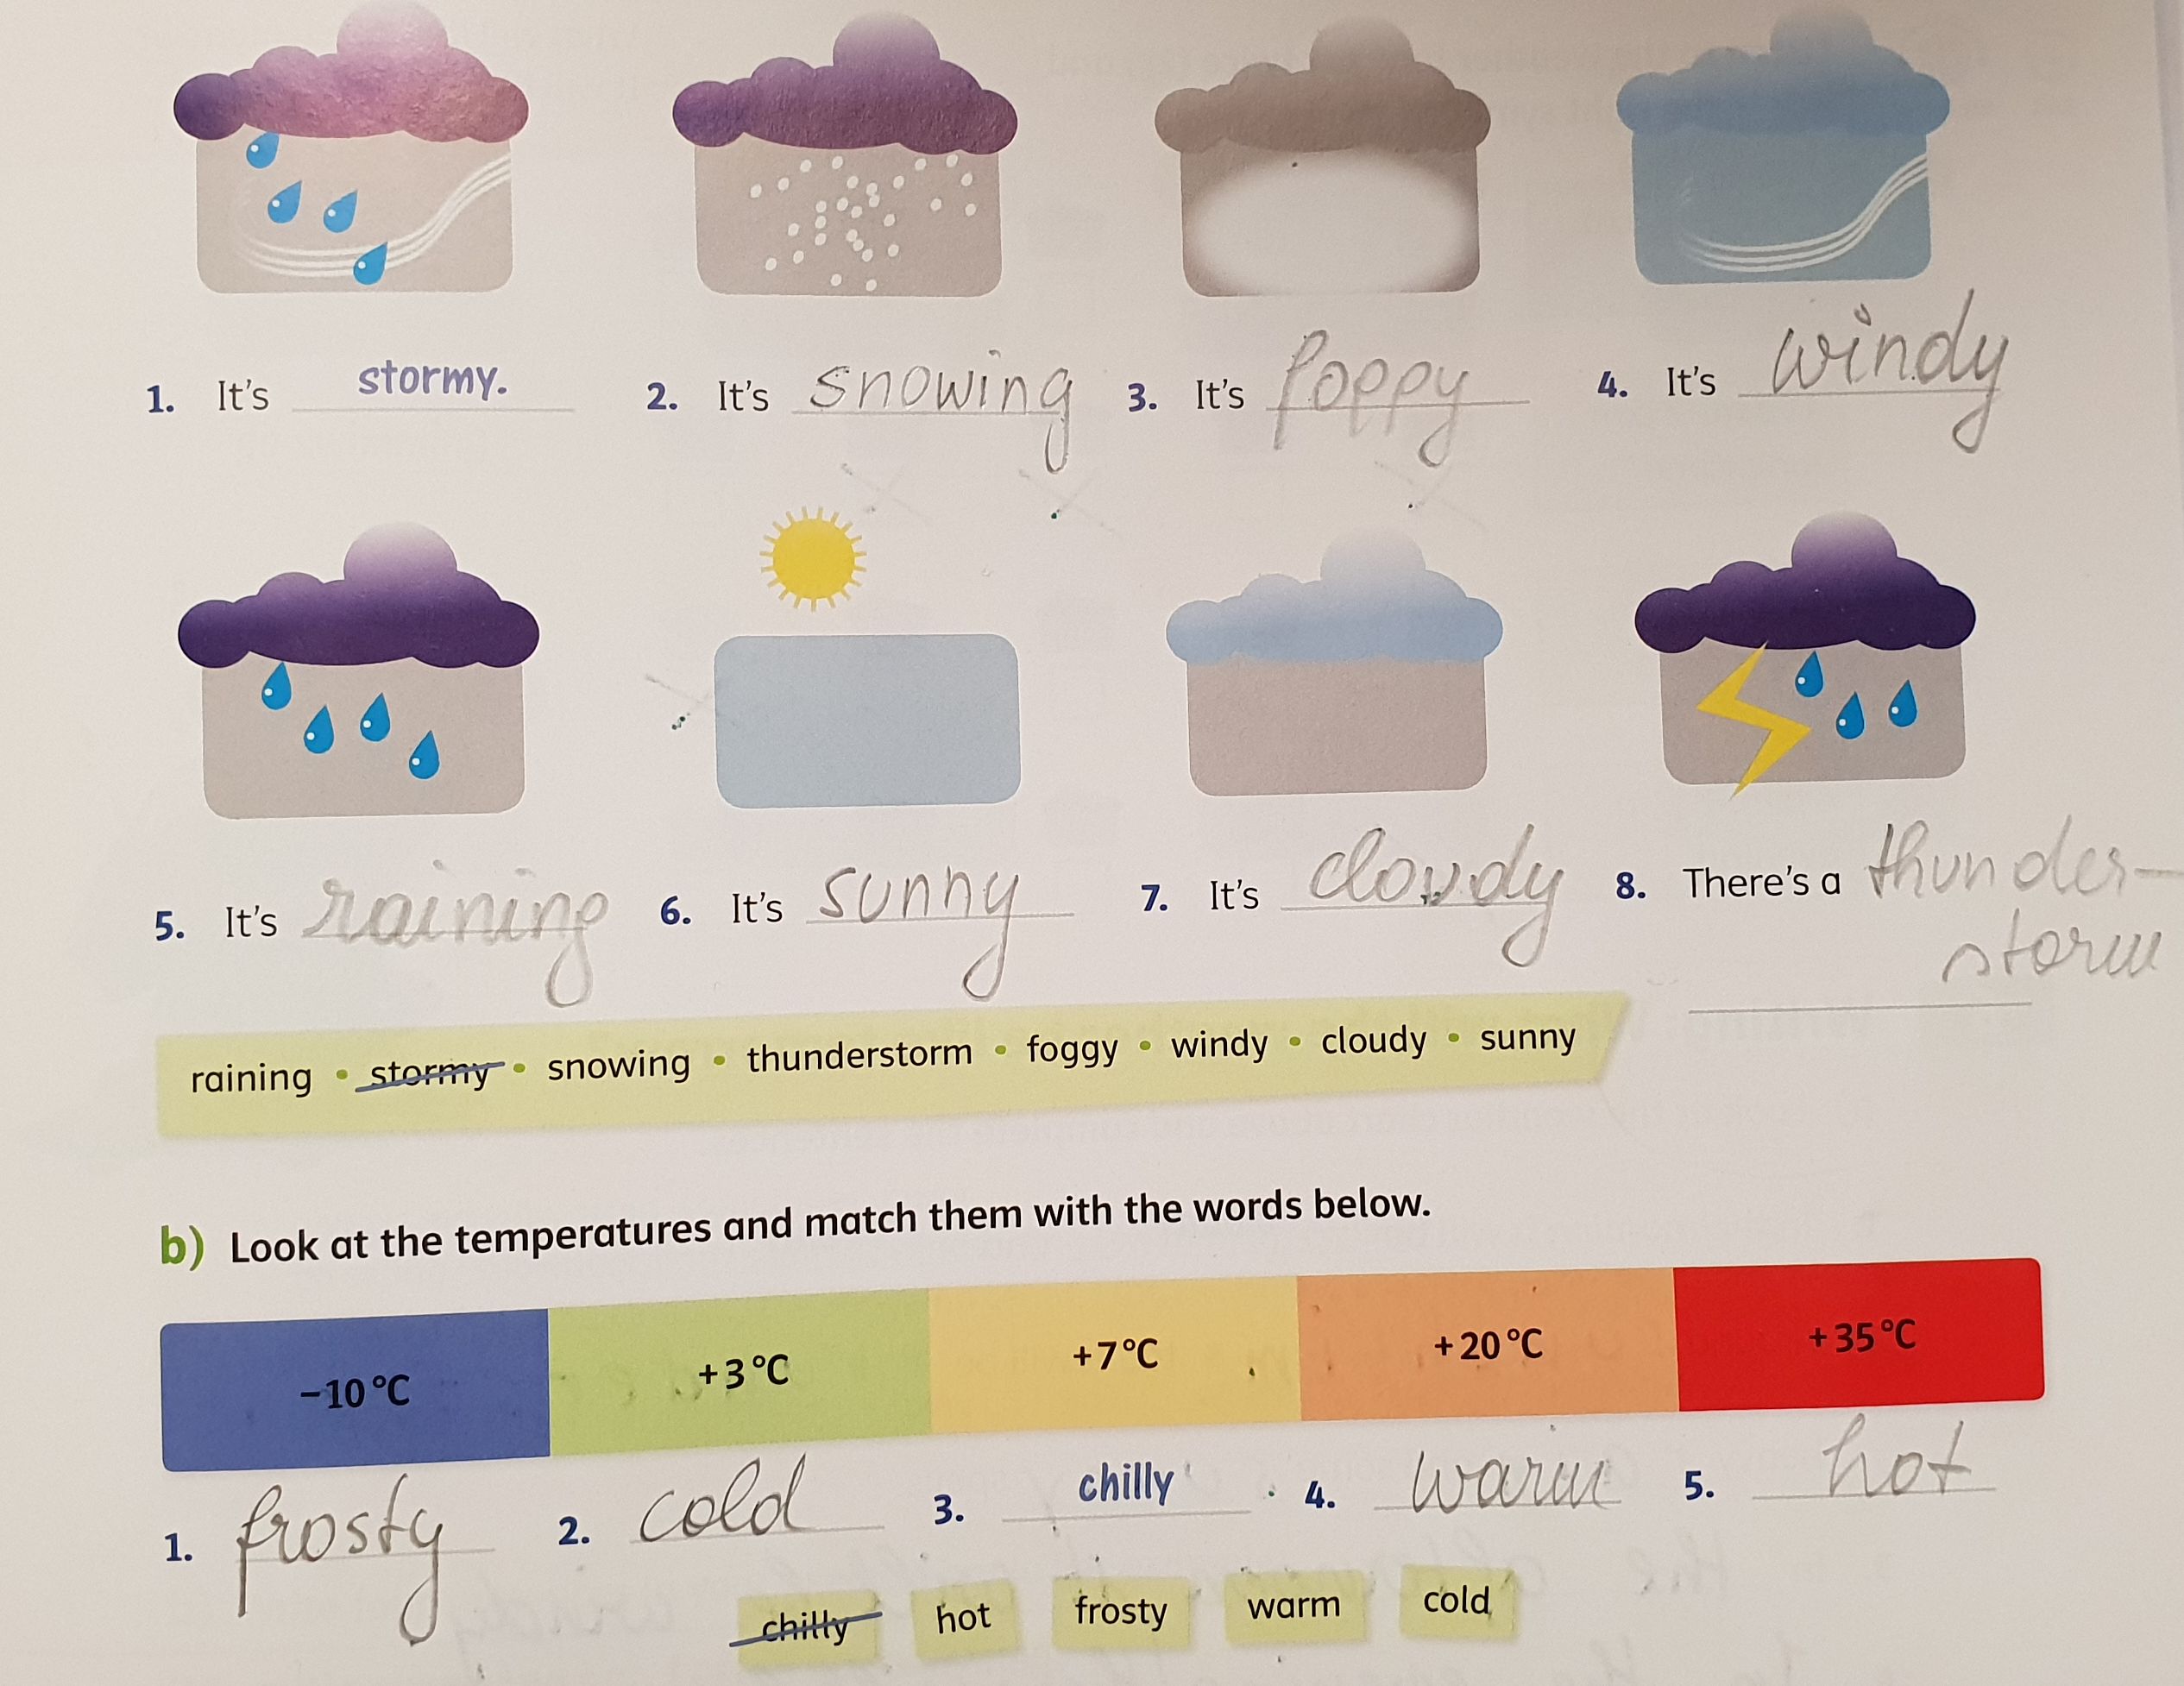 1. It's stormy. 2. It's snowing 3. It's foppy 4. It's windy
5. It's raining 6. It's sunny 7. It's cloudy 8. There's a thunder-
storm
raining • stormy • snowing • thunderstorm • foggy • windy • cloudy • sunny
b) Look at the temperatures and match them with the words below.
–10 °C +3 °C +7 °C +20 °C +35 °C
1. frosty 2. cold 3. chilly 4. warm 5. hot
chilly hot frosty warm cold